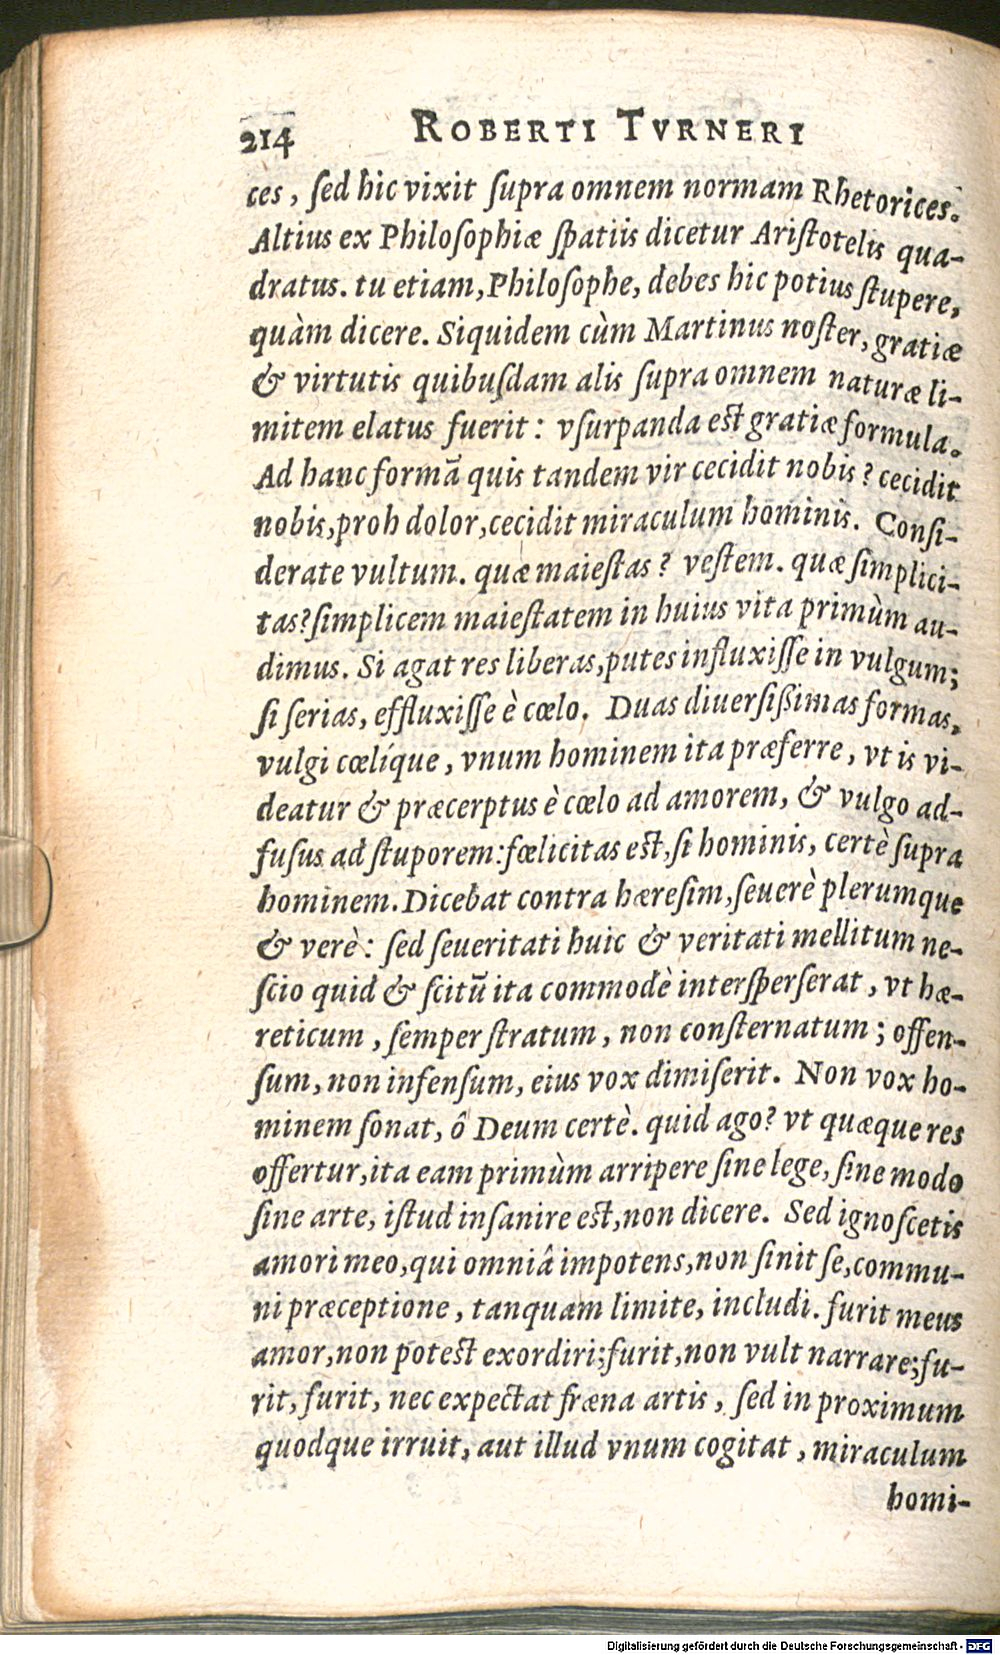 214 ROBERTI TVRNERI
ces, ſed hic vixit ſupra omnem normam Rhetorices.
Altius ex Philoſophiæ ſpatiis dicetur Ariſtotelis qua-
dratus. tu etiam, Philoſophe, debes hic potius ſtupere,
quàm dicere. Siquidem cùm Martinus noſter, gratiæ
& virtutis quibuſdam alis ſupra omnem naturæ li-
mitem elatus fuerit: vſurpanda eſt gratiæ formula.
Ad hanc formā quis tandem vir cecidit nobis? cecidit
nobis, proh dolor, cecidit miraculum hominis. Conſi-
derate vultum. quæ maieſtas? veſtem. quæ ſimplici-
tas? ſimplicem maieſtatem in huius vita primùm au-
dimus. Si agat res liberas, putes influxiſſe in vulgum;
ſi ſerias, effluxiſſe è cœlo. Duas diuerſiſsimas formas,
vulgi cœlíque, vnum hominem ita præferre, vt is vi-
deatur & præcerptus è cœlo ad amorem, & vulgo ad-
fuſus ad ſtuporem: fœlicitas eſt, ſi hominis, certè ſupra
hominem. Dicebat contra hæreſim, ſeuerè plerumque
& verè: ſed ſeueritati huic & veritati mellitum ne-
ſcio quid & ſcitū ita commodè interſperſerat, vt hæ-
reticum, ſemper ſtratum, non conſternatum; offen-
ſum, non infenſum, eius vox dimiſerit. Non vox ho-
minem ſonat, ô Deum certè. quid ago? vt quæque res
offertur, ita eam primùm arripere ſine lege, ſine modo
ſine arte, iſtud inſanire eſt, non dicere. Sed ignoſcetis
amori meo, qui omniâ impotens, non ſinit ſe, commu-
ni præceptione, tanquam limite, includi. furit meus
amor, non poteſt exordiri; furit, non vult narrare; fu-
rit, furit, nec expectat fræna artis, ſed in proximum
quodque irruit, aut illud vnum cogitat, miraculum
homi-
Digitalisierung gefördert durch die Deutsche Forschungsgemeinschaft - DFG